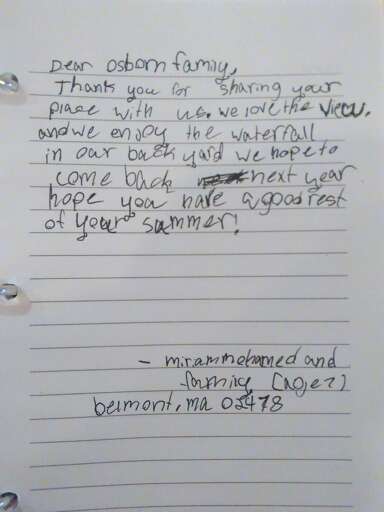 Dear osborn family,
Thanks you for sharing your
place with us. we love the view.
and we enjoy the waterfall
in our back yard we hope to
come back next year
hope you have a good rest
of your summer!
- miram mohamed and
family (age 7)
belmont, ma 02478